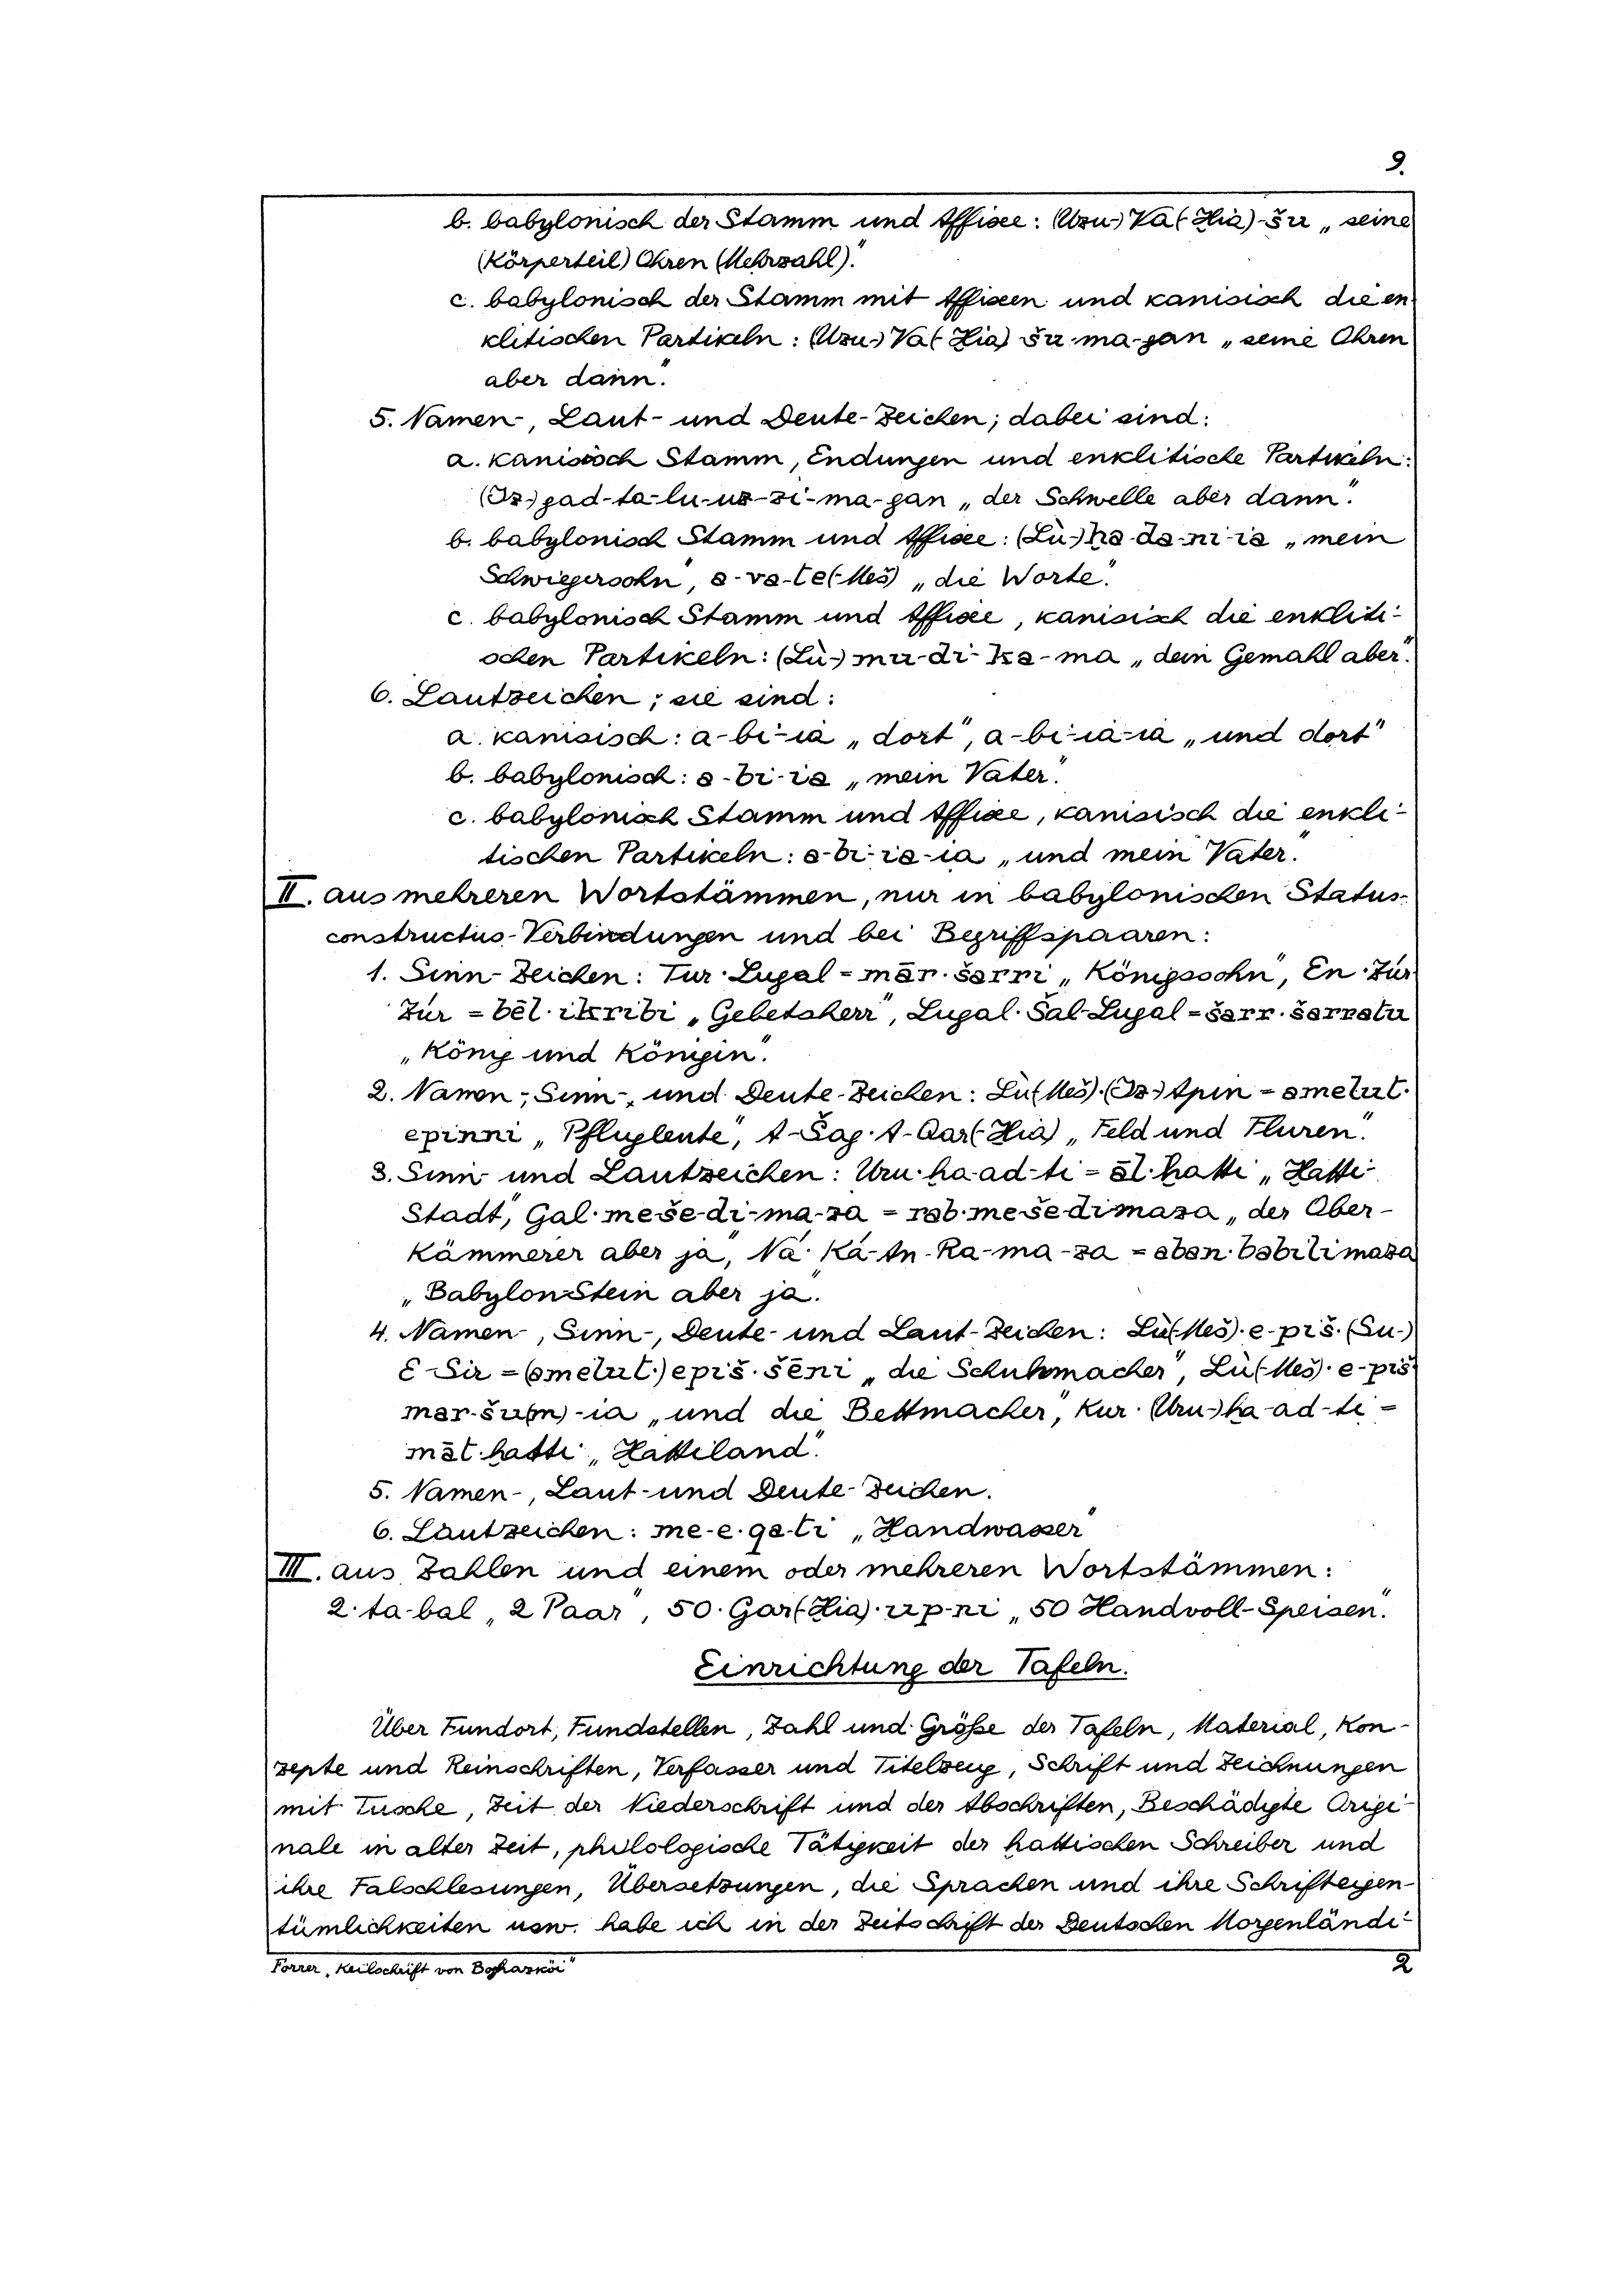 9.
b. babylonisch der Stamm und Affixe: (Uzu-) Va(-Hia)-šu „seine
(Körperteil) Ohren (Mehrzahl)."
c. babylonisch der Stamm mit Affixen und kanisisch die en-
klitischen Partikeln: (Uzu-) Va(-Hia) šu-ma-gan „seine Ohren
aber dann".
5. Namen-, Laut- und Deute-Zeichen; dabei sind:
a. kanisisch Stamm, Endungen und enklitische Partikeln:
(Iz-) gad-ta-lu-uz-zi-ma-gan „der Schwelle aber dann".
b. babylonisch Stamm und Affixe: (Lù-) ha-da-ni-ia „mein
Schwiegersohn", a-va-te(-Meš) „die Worte".
c. babylonisch Stamm und Affixe, kanisisch die enkliti-
schen Partikeln: (Lù-) mu-di-ka-ma „dein Gemahl aber".
6. Lautzeichen; sie sind:
a. kanisisch: a-bi-ia „dort", a-bi-ia-ia „und dort"
b. babylonisch: a-bi-ia „mein Vater".
c. babylonisch Stamm und Affixe, kanisisch die enkli-
tischen Partikeln: a-bi-ia-ia „und mein Vater".
II. aus mehreren Wortstämmen, nur in babylonischen Status-
constructus-Verbindungen und bei Begriffspaaren:
1. Sinn-Zeichen: Tur·Lugal = mār·šarri „Königssohn", En·Zur
Zúr = bēl·ikribi „Gebetsherr", Lugal·Šal-Lugal = šarr·šarratu
„König und Königin".
2. Namen-, Sinn-, und Deute-Zeichen: Lù(-Meš)·(Iz-) Apin = amelut·
epinni „Pflugleute", A-Šag·A-Qar(-Hia) „Feld und Fluren".
3. Sinn- und Lautzeichen: Uru·ha-ad-ti = āl·hatti „Hatti-
Stadt", Gal·me-še-di-ma-za = rab·mešedimaza „der Ober-
kämmerer aber ja", Na·Ká-An-Ra-ma-za = aban·babilimaza
„Babylon-Stein aber ja".
4. Namen-, Sinn-, Deute- und Laut-Zeichen: Lù(-Meš)·e-piš·(Šu-)
E-Sir = (amelut·) epiš·šēni „die Schuhmacher", Lù(-Meš)·e-piš·
mar-šu(m)-ia „und die Bettmacher", Kur·(Uru-) ha-ad-ti =
māt·hatti „Hattiland".
5. Namen-, Laut- und Deute-Zeichen.
6. Lautzeichen: me-e·qa-ti „Handwasser"
III. aus Zahlen und einem oder mehreren Wortstämmen:
2·ta-bal „2 Paar", 50·Gar(-Hia)·up-ni „50 Handvoll-Speisen".
Einrichtung der Tafeln.
Über Fundort, Fundstellen, Zahl und Größe der Tafeln, Material, Kon-
zepte und Reinschriften, Verfasser und Titelzeug, Schrift und Zeichnungen
mit Tusche, Zeit der Niederschrift und der Abschriften, Beschädigte Origi-
nale in alter Zeit, philologische Tätigkeit der hattischen Schreiber und
ihre Falschlesungen, Übersetzungen, die Sprachen und ihre Schrifteigen-
tümlichkeiten usw. habe ich in der Zeitschrift der Deutschen Morgenländi-
Forrer, „Keilschrift von Boghazköi" 2